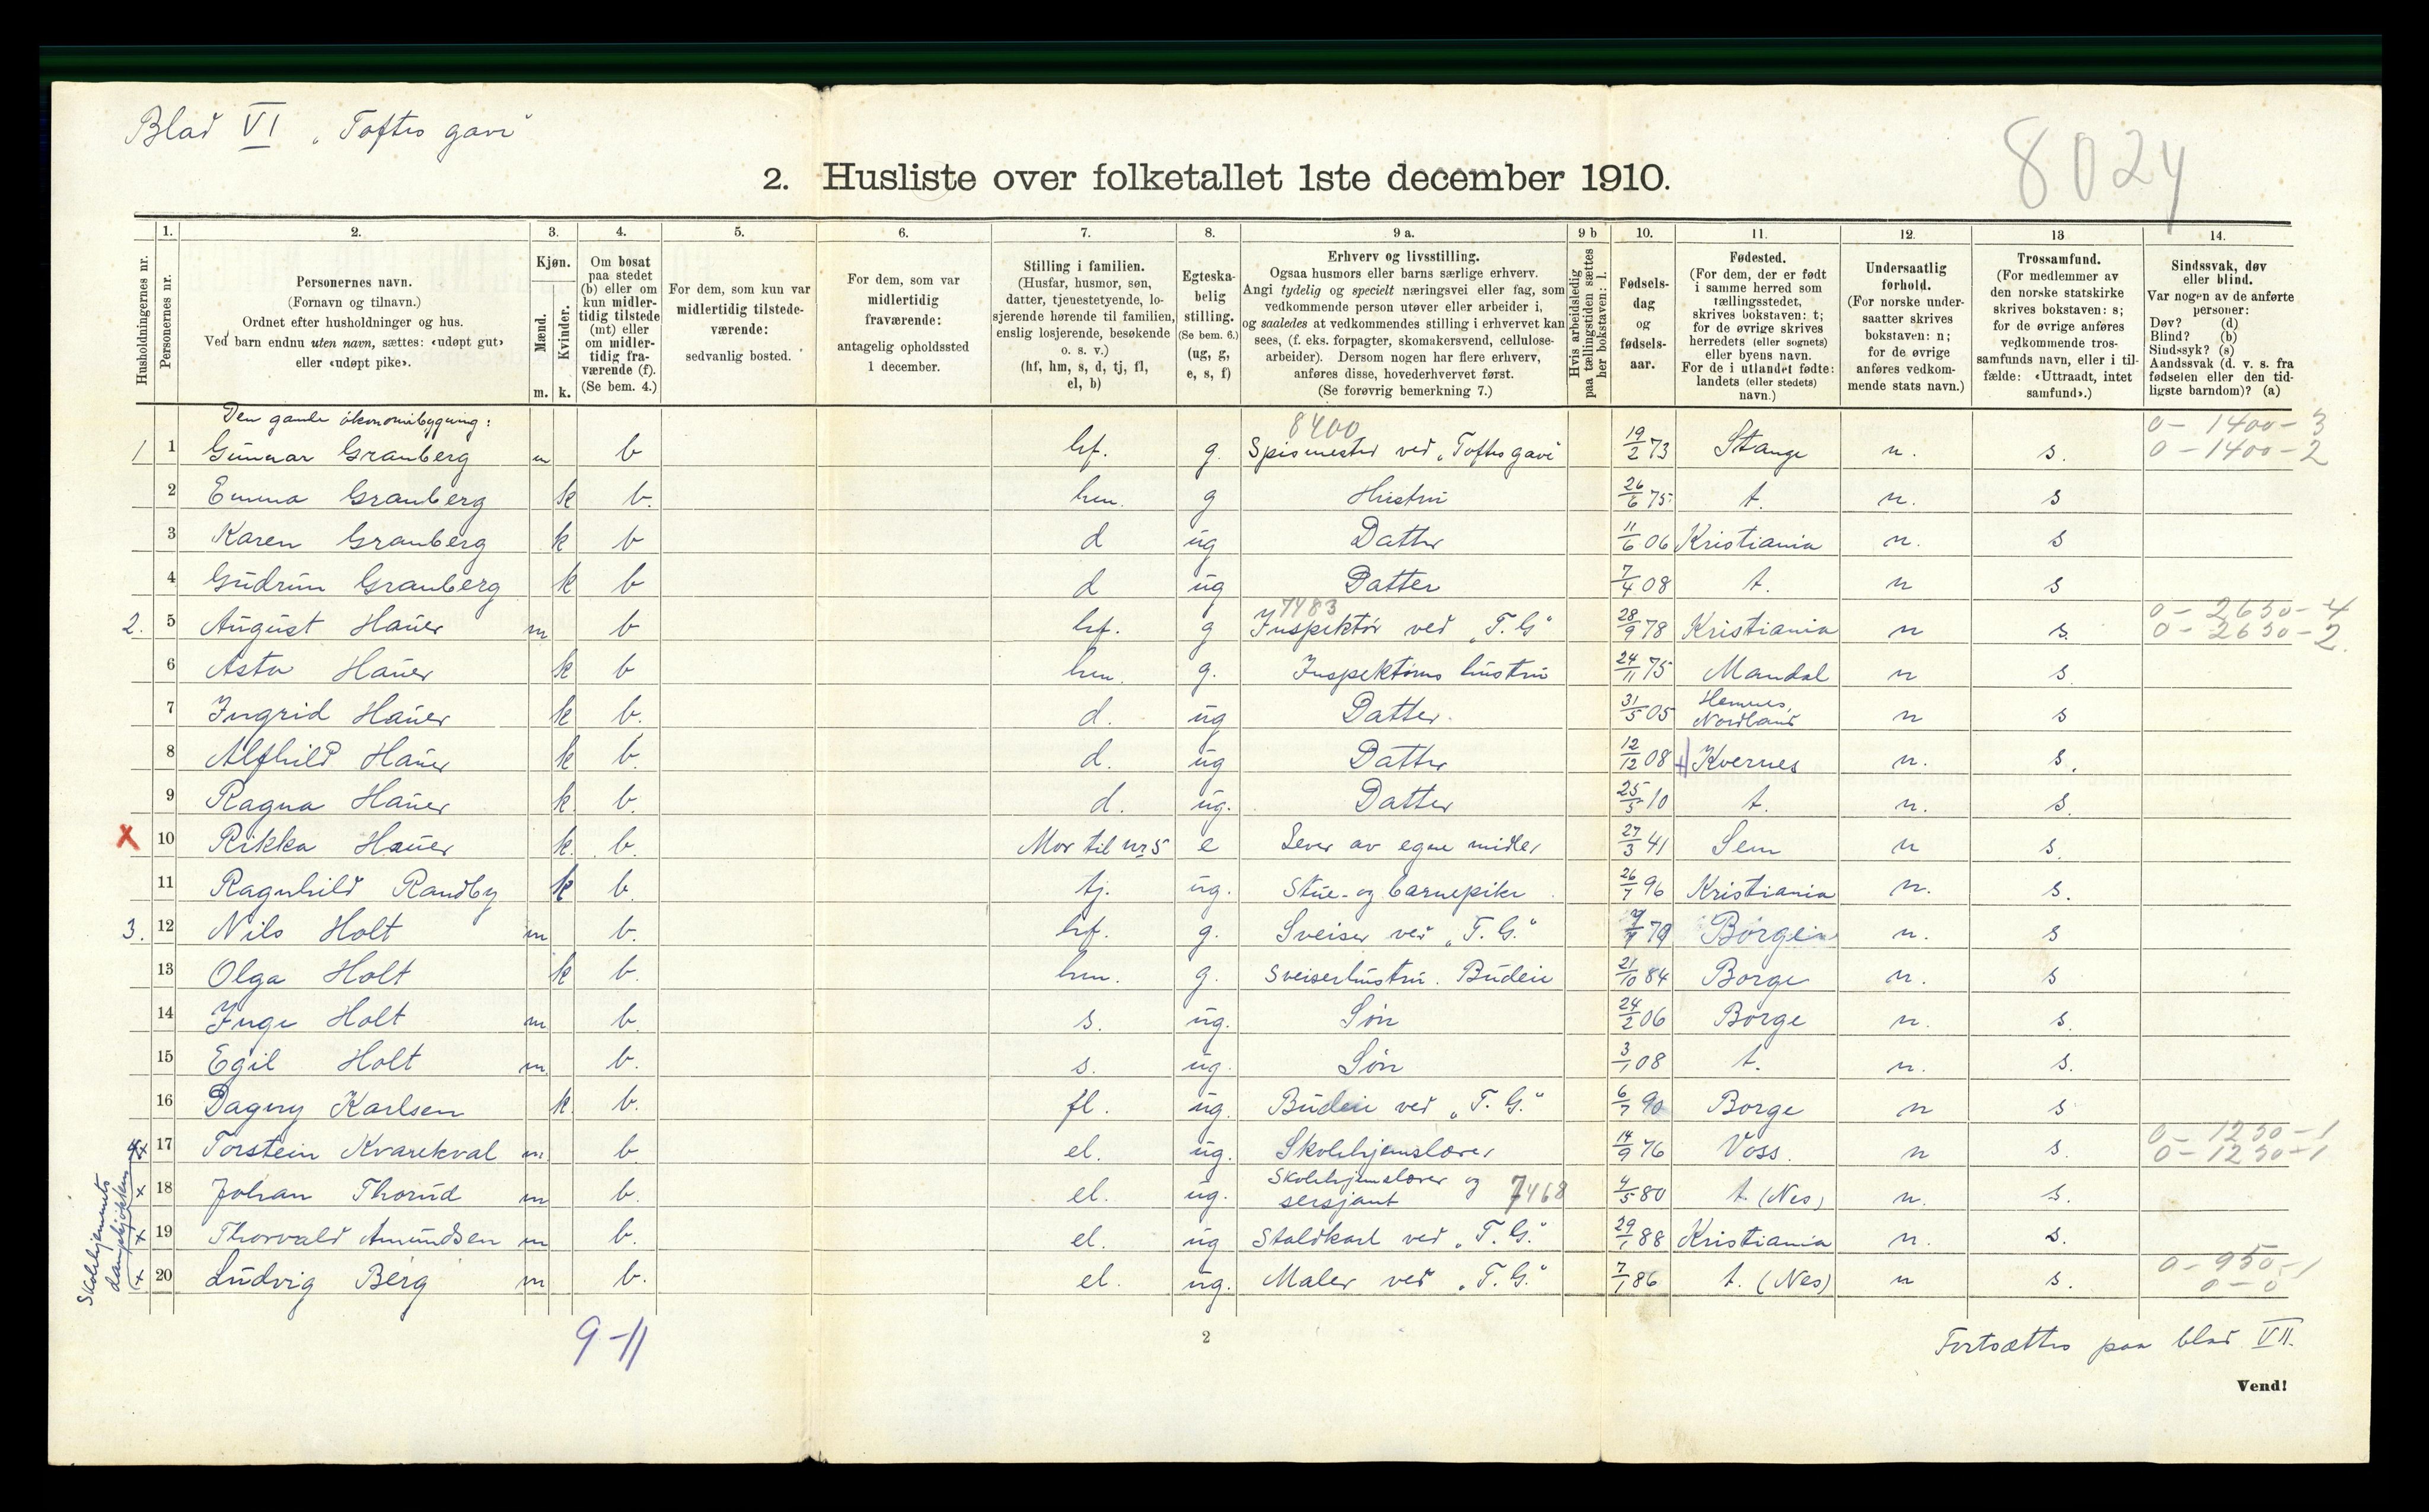 Blad VI „Toftes gave"
8024
2. Husliste over folketallet 1ste december 1910.
Husholdningernes nr.
1. Personernes nr.
2. Personernes navn.
(Fornavn og tilnavn.)
Ordnet efter husholdninger og hus.
Ved barn endnu uten navn, sættes: «udøpt gut»
eller «udøpt pike».
3. Kjøn.
Mænd. m.
Kvinder. k.
4. Om bosat
paa stedet
(b) eller om
kun midler-
tidig tilstede
(mt) eller
om midler-
tidig fra-
værende (f).
(Se bem. 4.)
5. For dem, som kun var
midlertidig tilstede-
værende:
sedvanlig bosted.
6. For dem, som var
midlertidig
fraværende:
antagelig opholdssted
1 december.
7. Stilling i familien.
(Husfar, husmor, søn,
datter, tjenestetyende, lo-
sjerende hørende til familien,
enslig losjerende, besøkende
o. s. v.)
(hf, hm, s, d, tj, fl,
el, b)
8. Egteska-
belig
stilling.
(Se bem. 6.)
(ug, g,
e, s, f)
9 a. Erhverv og livsstilling.
Ogsaa husmors eller barns særlige erhverv.
Angi tydelig og specielt næringsvei eller fag, som
vedkommende person utøver eller arbeider i,
og saaledes at vedkommendes stilling i erhvervet kan
sees, (f. eks. forpagter, skomakersvend, cellulose-
arbeider). Dersom nogen har flere erhverv,
anføres disse, hovederhvervet først.
(Se forøvrig bemerkning 7.)
9 b Hvis arbeidsledig
paa tællingstiden sættes
her bokstaven: l.
10. Fødsels-
dag
og
fødsels-
aar.
11. Fødested.
(For dem, der er født
i samme herred som
tællingsstedet,
skrives bokstaven: t;
for de øvrige skrives
herredets (eller sognets)
eller byens navn.
For de i utlandet fødte:
landets (eller stedets)
navn.)
12. Undersaatlig
forhold.
(For norske under-
saatter skrives
bokstaven: n;
for de øvrige
anføres vedkom-
mende stats navn.)
13 Trossamfund.
(For medlemmer av
den norske statskirke
skrives bokstaven: s;
for de øvrige anføres
vedkommende tros-
samfunds navn, eller i til-
fælde: «Uttraadt, intet
samfund».)
14. Sindssvak, døv
eller blind.
Var nogen av de anførte
personer:
Døv? (d)
Blind? (b)
Sindssyk? (s)
Aandssvak (d. v. s. fra
fødselen eller den tid-
ligste barndom)? (a)
Den gamle økonomibygning:
8400
0 - 1400 - 3
1 1 Gunnar Granberg m b hf. g. Spismester ved „Toftes gave" 19/2 73 Stange n. s. 0 - 1400 - 2
2 Emma Granberg k b. hm. g Hustru 26/6 75 t. n. s
3 Karen Granberg k b d ug Datter 11/6 06 Kristiania n. s
4 Gudrun Granberg k b d ug Datter 7/4 08 t. n s
7483
0 - 2650 - 4
2. 5 August Hauer m b hf. g Inspektør ved „T. G" 28/9 78 Kristiania n s. 0 - 2650 - 2.
6 Asta Hauer k b hm. g. Inspektørns hustru 24/11 75 Mandal n s.
7 Ingrid Hauer k b. d. ug Datter 31/5 05 Hemnes, Nordland n s
8 Alfhild Hauer k b. d. ug Datter 12/12 08 Kvernes n. s.
9 Ragna Hauer k. b. d. ug. Datter 25/5 10 t. n. s.
X 10 Rikka Hauer k. b. Mor til nr 5 e Lever av egne midler 27/3 41 Sem n s.
11 Ragnhild Randby k b. tj. ug. Stue- og barnepike 26/7 96 Kristiania n. s.
3. 12 Nils Holt m b. hf. g. Sveiser ved „T. G." 79 Borge n. s
13 Olga Holt k b. hm. g. Sveiserhustru. Budeie 21/10 84 Borge n. s
14 Inge Holt m b. s. ug. Søn 24/2 06 Borge n. s.
15 Egil Holt m b. s. ug. Søn 3/1 08 t. n. s.
16 Dagny Karlsen k. b. fl. ug. Budeie ved „T. G." 6/7 90 Borge n s
0 - 1250 - 1
Skolehjemmets dampkjøkken
4 x 17 Torstein Kvarekval m. b. el. ug. Skolehjemslærer 14/9 76 Voss. n s. 0 - 1250 - 1
x 18 Johan Thorud m b. el. ug. Skolehjemslærer og sersjant 7468 4/5 80 t. (Nes) n. s.
x 19 Thorvald Amundsen m b. el. ug Staldkarl ved „T. G." 29/1 88 Kristiania n. s.
0 - 950 - 1
x 20 Ludvig Berg m b. el. ug. Maler ved „T. G." 7/1 86 t. (Nes) n s. 0 - 0
9-11
2
Fortsættes paa blad VII.
Vend!